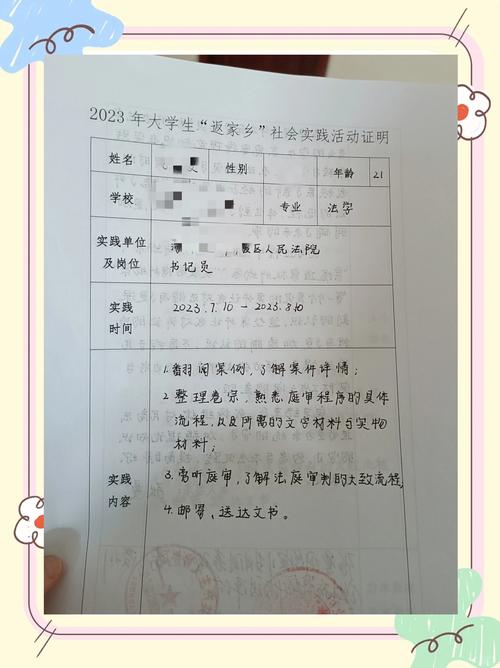 2023 年大学生“返家乡”社会实践活动证明
姓名 性别 年龄 21
学校 专业 法学
实践单位及岗位 区人民法院
书记员
实践时间 2023.7.10 - 2023.8.10
1.翻阅案例,了解案件详情;
2.整理卷宗,熟悉庭审程序的具体
流程,以及所需的文字材料与实物
材料;
实践内容
3.旁听庭审,了解法庭审判的大致流程,
4.邮寄、送达文书。